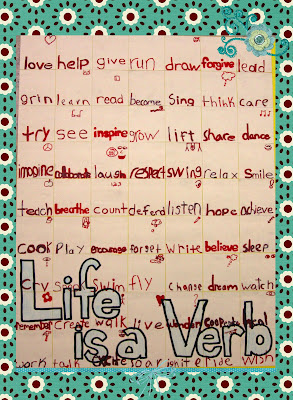 love help give run draw forgive lead
grin learn read become sing think care
try see inspire grow lift share dance
imagine collaborate laugh respect swing relax smile
teach breathe count defend listen hope achieve
cook play encourage forget write believe sleep
cry swim fly change dream watch
remember create walk live wonder cooperate
work talk roar ignite wish
Life
is a Verb